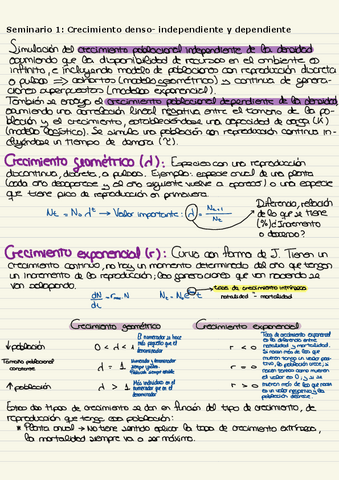 Seminario 1: Crecimiento denso- independiente y dependiente
Simulación del crecimiento poblacional independiente de la densidad
asumiendo que la disponibilidad de recursos en el ambiente es
infinito, e incluyendo modelo de poblaciones con reproducción discreta
o pulsos => cohortes (modelo geométrico) y continua de genera-
ciones superpuestas (modelo exponencial).
También se ensaya el crecimiento poblacional dependiente de la densidad,
asumiendo una correlación lineal negativa entre el tamaño de la po-
blación y el crecimiento, estableciéndose una capacidad de carga (K)
(modelo logístico). Se simula una población con reproducción continua in-
cluyéndose un tiempo de demora (τ).
Crecimiento geométrico (λ): Especies con una reproducción
discontinua, discreta, a pulsos. Ejemplo: especie anual de una planta
(cada año desaparece y el año siguiente vuelve a aparecer) o una especie
que tiene pico de reproducción en primavera.
Nt = N₀ λ^t → Valor importante: λ = Nt+1 / Nt
Diferencia, relación
de lo que se tiene
(%) ¿Incremento
o descenso?
Crecimiento exponencial (r): Curva con forma de J. Tienen un
crecimiento continuo, no hay un momento determinado del año que tengan
un incremento de la reproducción; las generaciones que van naciendo se
van solapando.
tasa de crecimiento intrínseco
natalidad - mortalidad
Crecimiento geométrico Crecimiento exponencial
↓ población 0 < λ < 1 r < 0
El numerador se hace
más pequeño que el
denominador
Tamaño poblacional
constante λ = 1 r = 0
Numerador y denominador
siempre iguales.
Población siempre estable
↑ población λ > 1 r > 0
Más individuos en el
numerador que en el
denominador
Tasa de crecimiento exponencial
es la diferencia entre
natalidad y mortalidad.
Estos dos tipos de crecimiento se dan en función del tipo de crecimiento, de
reproducción que tenga esa población:
* Planta anual → No tiene sentido aplicar la tasa de crecimiento extrínseco,
la mortalidad siempre va a ser máxima.